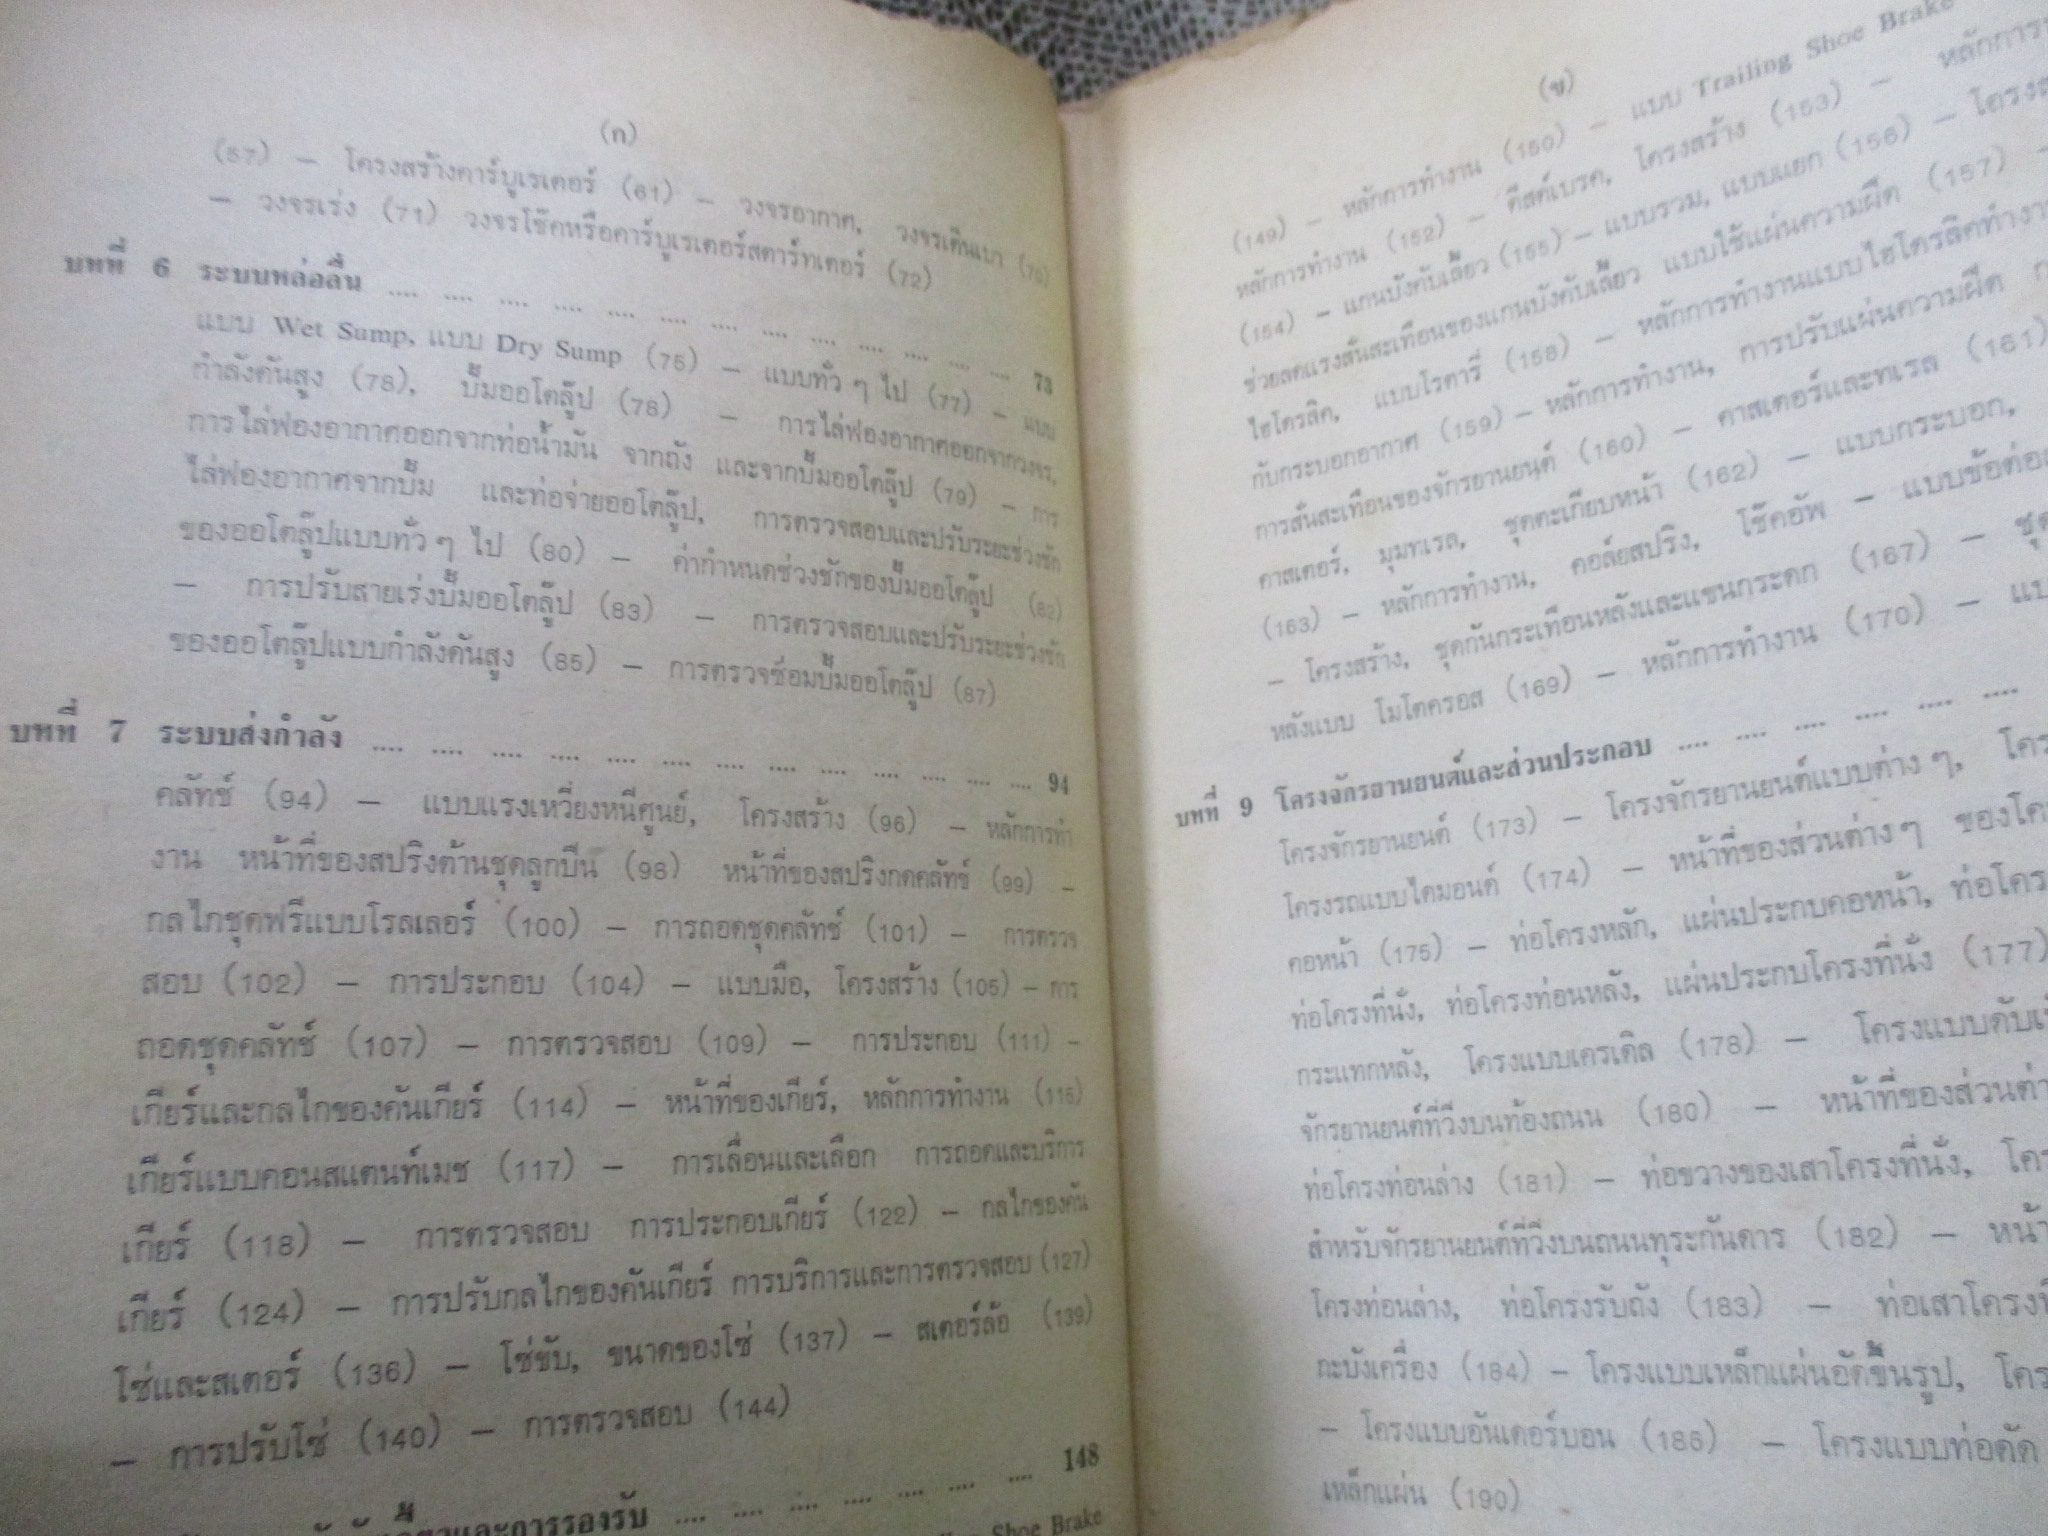 (ก)
(57) – โครงสร้างคาร์บูเรเตอร์ (61) – วงจรอากาศ, วงจรเดินเบา (70)
– วงจรเร่ง (71) วงจรโช๊คหรือคาร์บูเรเตอร์สตาร์ทเตอร์ (72)
บทที่ 6 ระบบหล่อลื่น .... .... .... .... .... .... .... .... .... .... .... .... .... 73
แบบ Wet Sump, แบบ Dry Sump (75) – แบบทั่ว ๆ ไป (77) – แบบ
กำลังดันสูง (78), ปั๊มออโตลู๊ป (78) – การไล่ฟองอากาศออกจากวงจร,
การไล่ฟองอากาศออกจากท่อน้ำมัน จากถัง และจากปั๊มออโตลู๊ป (79) – การ
ไล่ฟองอากาศจากปั๊ม และท่อจ่ายออโตลู๊ป, การตรวจสอบและปรับระยะช่วงชัก
ของออโตลู๊ปแบบทั่ว ๆ ไป (80) – ค่ากำหนดช่วงชักของปั๊มออโตลู๊ป (82)
– การปรับสายเร่งปั๊มออโตลู๊ป (83) – การตรวจสอบและปรับระยะช่วงชัก
ของออโตลู๊ปแบบกำลังดันสูง (85) – การตรวจซ่อมปั๊มออโตลู๊ป (87)
บทที่ 7 ระบบส่งกำลัง .... .... .... .... .... .... .... .... .... .... .... .... .... 94
คลัทช์ (94) – แบบแรงเหวี่ยงหนีศูนย์, โครงสร้าง (96) – หลักการทำ
งาน หน้าที่ของสปริงด้านชุดลูกปืน (98) หน้าที่ของสปริงกดคลัทช์ (99) –
กลไกชุดฟรีแบบโรลเลอร์ (100) – การถอดชุดคลัทช์ (101) – การตรวจ
สอบ (102) – การประกอบ (104) – แบบมือ, โครงสร้าง (105) – การ
ถอดชุดคลัทช์ (107) – การตรวจสอบ (109) – การประกอบ (111) –
เกียร์และกลไกของคันเกียร์ (114) – หน้าที่ของเกียร์, หลักการทำงาน (115)
เกียร์แบบคอนสแตนท์เมช (117) – การเลื่อนและเลือก การถอดและบริการ
เกียร์ (118) – การตรวจสอบ การประกอบเกียร์ (122) – กลไกของคัน
เกียร์ (124) – การปรับกลไกของคันเกียร์ การบริการและการตรวจสอบ (127)
โซ่และสเตอร์ (136) – โซ่ขับ, ขนาดของโซ่ (137) – สเตอร์ล้อ (139)
– การปรับโซ่ (140) – การตรวจสอบ (144)
และการรองรับ .... .... .... .... .... .... .... 148
Shoe Brake
(ข)
(149) – หลักการทำงาน (150) – แบบ Trailing Shoe Brake
หลักการทำงาน (152) – ดีสค์เบรค, โครงสร้าง (153) – หลักการ
(154) – แกนบังคับเลี้ยว (155) – แบบรวม, แบบแยก (156) – โครงส
ช่วยลดแรงสั่นสะเทือนของแกนบังคับเลี้ยว แบบใช้แผ่นความฝืด (157) –
ไฮโดรลิค, แบบโรตารี่ (158) – หลักการทำงานแบบไฮโดรลิคทำงาน
กับกระบอกอากาศ (159) – หลักการทำงาน, การปรับแผ่นความฝืด ก
การสั่นสะเทือนของจักรยานยนต์ (160) – คาสเตอร์และทเรล (161)
คาสเตอร์, มุมทเรล, ชุดตะเกียบหน้า (162) – แบบกระบอก,
(163) – หลักการทำงาน, คอล์ยสปริง, โช๊คอัพ – แบบข้อต่อ
– โครงสร้าง, ชุดกันกระเทือนหลังและแขนกระดก (167) – ชุด
หลังแบบ โมโตครอส (169) – หลักการทำงาน (170) – แบ
บทที่ 9 โครงจักรยานยนต์และส่วนประกอบ .... .... .... .... .... ....
โครงจักรยานยนต์ (173) – โครงจักรยานยนต์แบบต่าง ๆ, โคร
โครงรถแบบไดมอนด์ (174) – หน้าที่ของส่วนต่าง ๆ ของโค
คอหน้า (175) – ท่อโครงหลัก, แผ่นประกบคอหน้า, ท่อโคร
ท่อโครงที่นั่ง, ท่อโครงท่อนหลัง, แผ่นประกบโครงที่นั่ง (177)
กระแทกหลัง, โครงแบบเครเดิล (178) – โครงแบบดับเ
จักรยานยนต์ที่วิ่งบนท้องถนน (180) – หน้าที่ของส่วนต่า
ท่อโครงท่อนล่าง (181) – ท่อขวางของเสาโครงที่นั่ง, โคร
สำหรับจักรยานยนต์ที่วิ่งบนถนนทุระกันดาร (182) – หน้า
โครงท่อนล่าง, ท่อโครงรับถัง (183) – ท่อเสาโครงที่
กะบังเครื่อง (184) – โครงแบบเหล็กแผ่นอัดขึ้นรูป, โคร
– โครงแบบอันเดอร์บอน (186) – โครงแบบท่อดัด
เหล็กแผ่น (190)